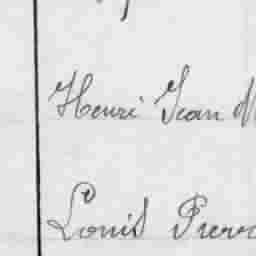 Henri Jean
Louis Pierre